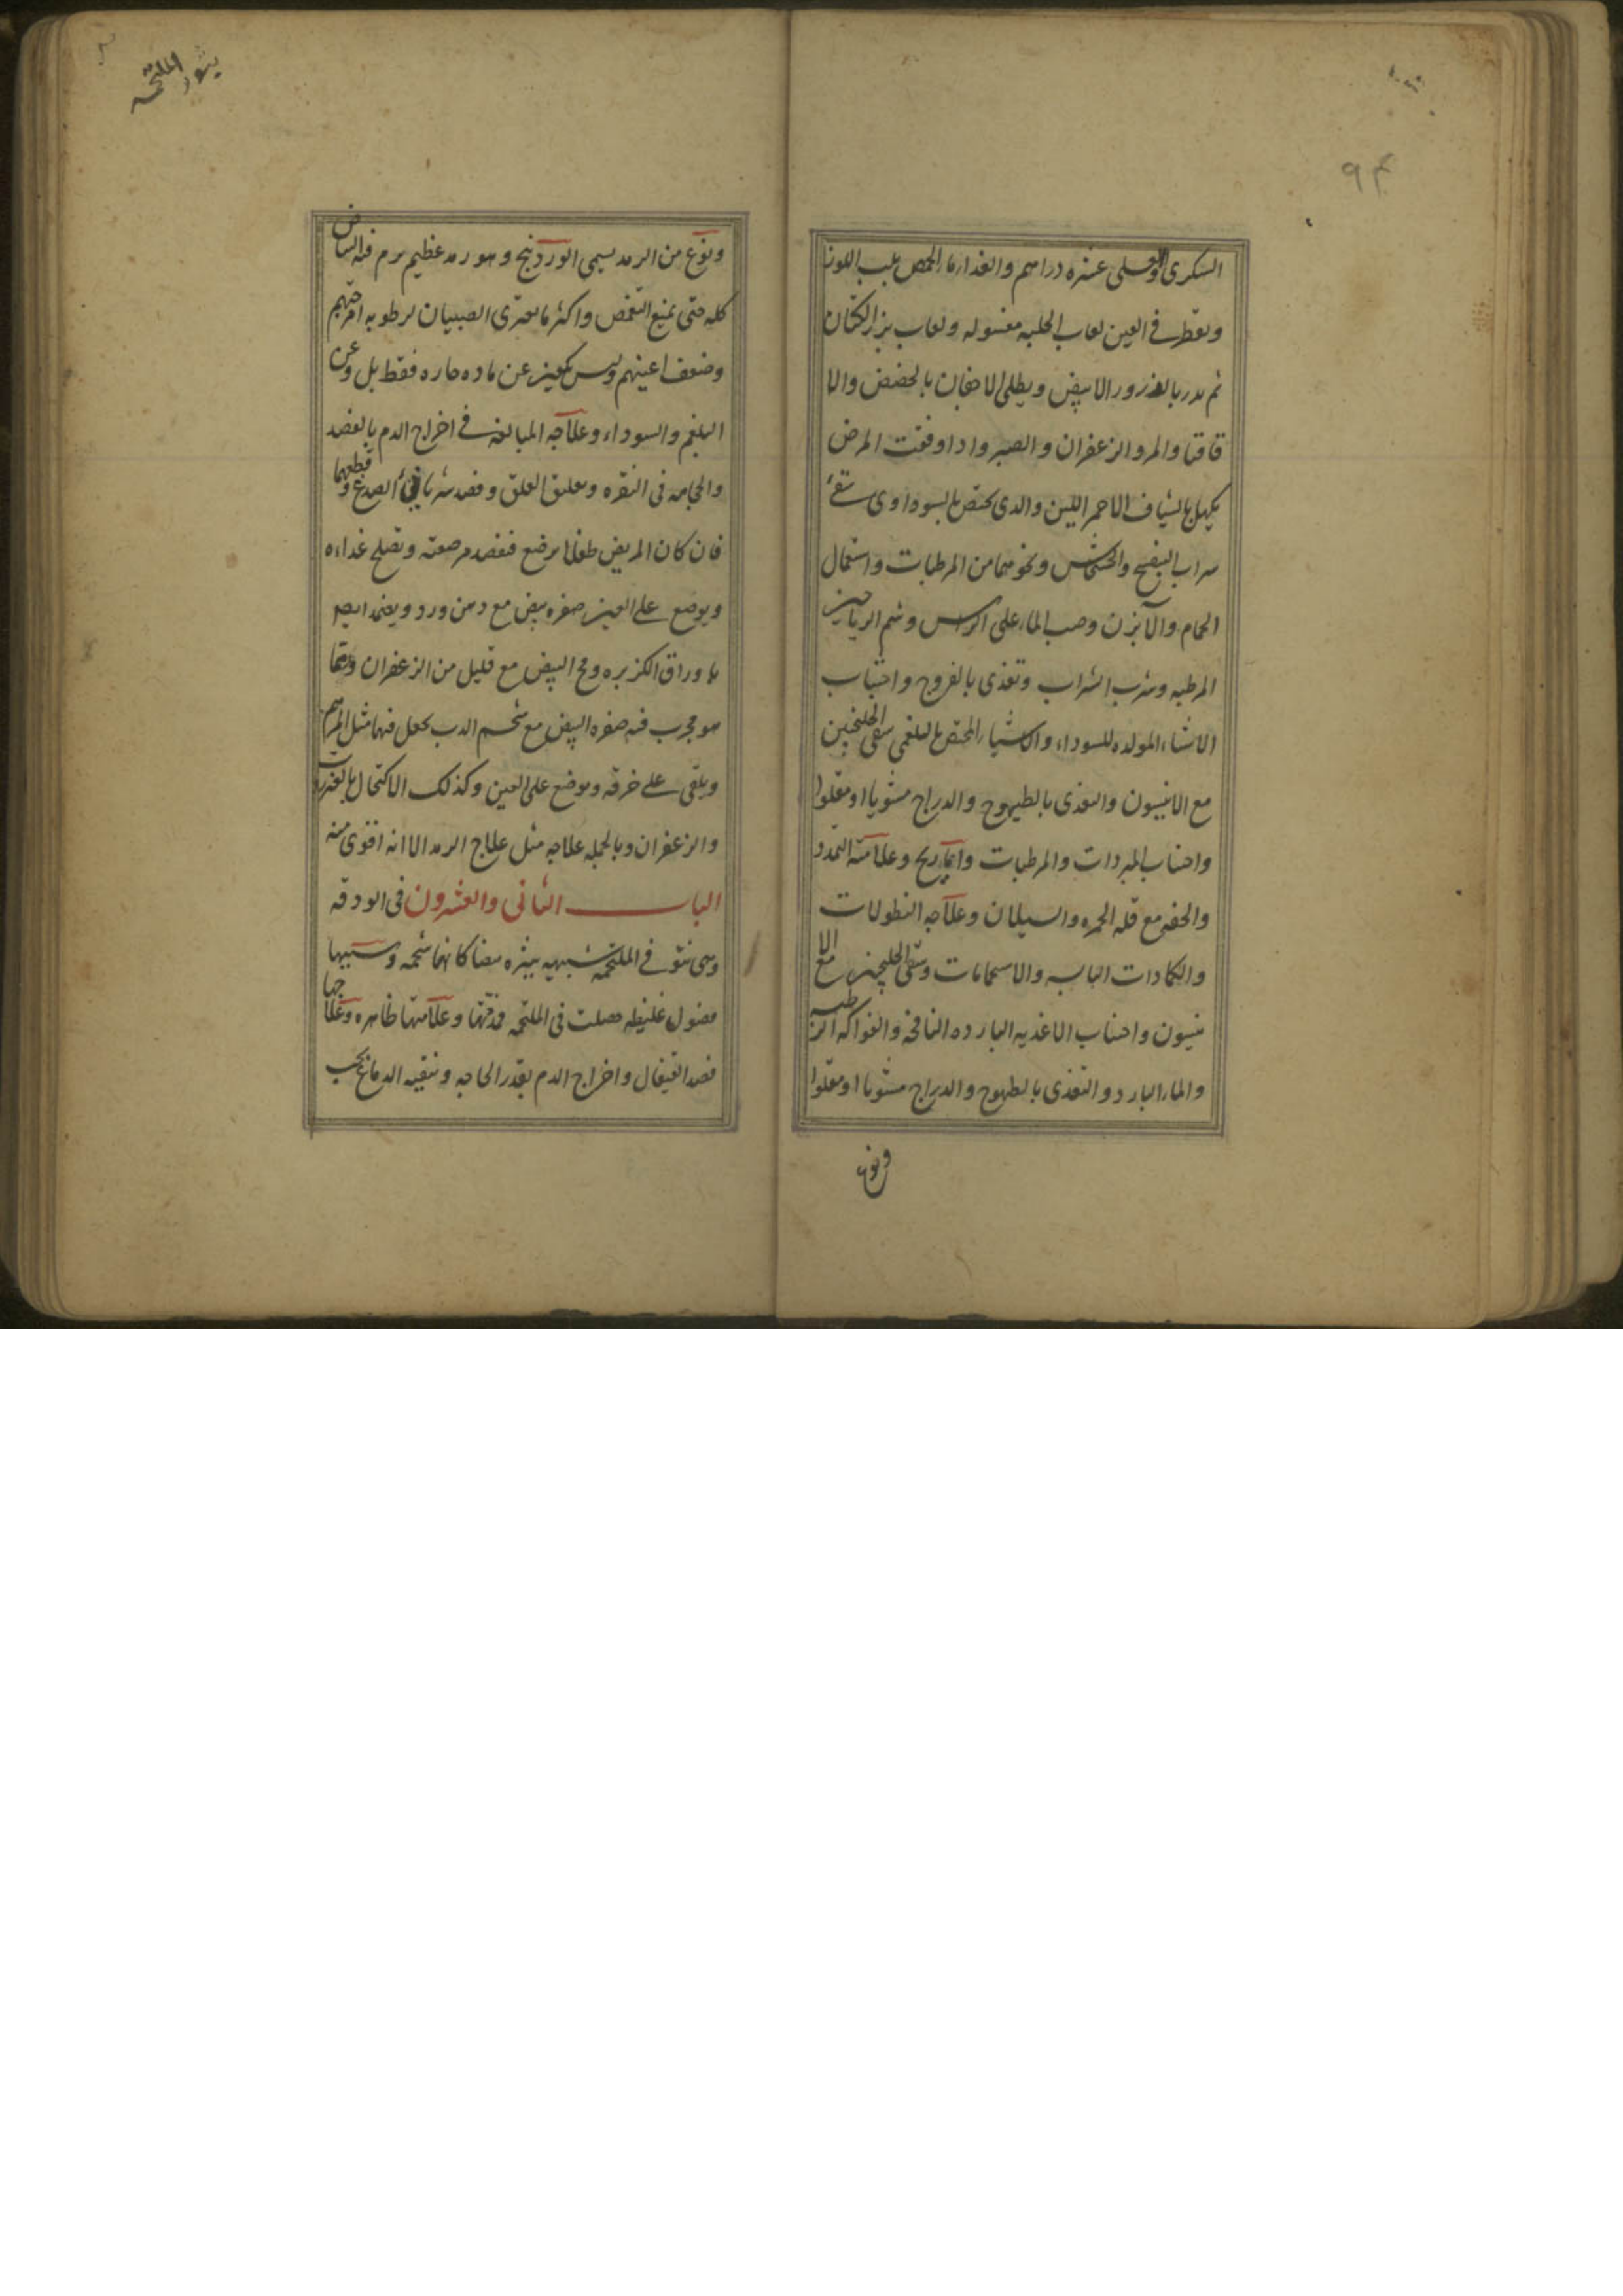 ٩٤
السكرى والعسلى عشره دراهم والغداء ماء الحمص بلب اللوز
ويقطر فى العين لعاب الحلبه مغسوله ولعاب بزر الكتان
ثم يدر بالذرور الابيض ويطلى الاجفان بالحضض والا
قاقيا والمر والزعفران والصبر واذا وقفت المرض
يكحل بالشياف الاحمر اللين والدى يختص بالسوداوى سقى
شراب البنفسج والخشخاش ونحوهما من المرطبات واستعمال
الحمام والآبزن وصب الماء على الراس وشم الرياحين
المرطبه وشرب الشراب وتغذى بالفروج واجتناب
الاشياء المولده للسوداء والاشياء المختص بالبلغمى سقى الجلنجبين
مع الانيسون والتغذى بالطيهوج والدراج مشويا او مقلوا
واجتناب المبردات والمرطبات واما ريح وعلامته التمدد
والخفه مع قله الحمره والسيلان وعلاجه النطولات
والكمادات اليابسه والاستحمامات وسقى الجلنجبين مع الا
نيسون واجتناب الاغذيه البارده النافخه والفواكه الرطبه
والماء البارد والتغذى بالطيهوج والدراج مشويا او مقلوا
ونوع
بثور الملتحمه
ونوع من الرمد يسمى الوردينج وهو رمد عظيم يرم فيه البياض
كله حتى يمنع التغمض واكثر ما يعترى الصبيان لرطوبه امزجتهم
وضعف اعينهم وليس يكون عن ماده حاره فقط بل وعن
البلغم والسوداء وعلاجه المبالغه فى اخراج الدم بالفصد
والحجامه فى النقره وتعليق العلق وفصد شريانى الصدغ وقطعهما
فان كان المريض طفلا يرضع فيفصد مرضعته وتصلح غداءه
ويوضع على العين صفره بيض مع دهن ورد ويضمد ايضا
باوراق الكزبره ومح البيض مع قليل من الزعفران ومما
هو مجرب فيه صفره البيض مع شحم الدب يجعل فيها مثل المرهم
ويلقى على خرقه ويوضع على العين وكذلك الاكتحال بالعنزروت
والزعفران وبالجمله علاجه مثل علاج الرمد الا انه اقوى منه
البـاب الثانى والعشرون فى الودقه
وهى نتو فى الملتحمه شبيهه ببثره بيضا كانها شحمه وسببها
فضول غليظه حصلت فى الملتحمه وعلامتها ظاهره وعلاجها
فصد القيفال واخراج الدم بقدر الحاجه وتنقيه الدماغ بحب